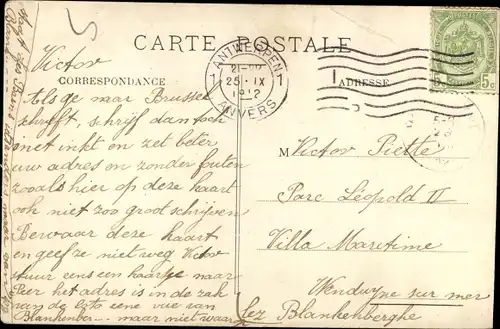 CARTE POSTALE
CORRESPONDANCE
ADRESSE
ANTWERPEN 1
25 · IX
1912
ANVERS
5c 5c
Victor
Als ge naar Brussel
schrijft, schrijf dan toch
met inkt en zet beter
uw adres en zonder fouten
zooals hier op deze kaart
ook niet zoo groot schrijven
Bewaar deze kaart
en geef ze niet weg Victor
stuur eens een kaartje naar
Peer het adres is in de zak
van de
vue van
Blankenber maar niet waar
M Victor Piette
Parc Léopold II
Villa Maritime
Wenduyne sur mer
Lez Blankenberghe